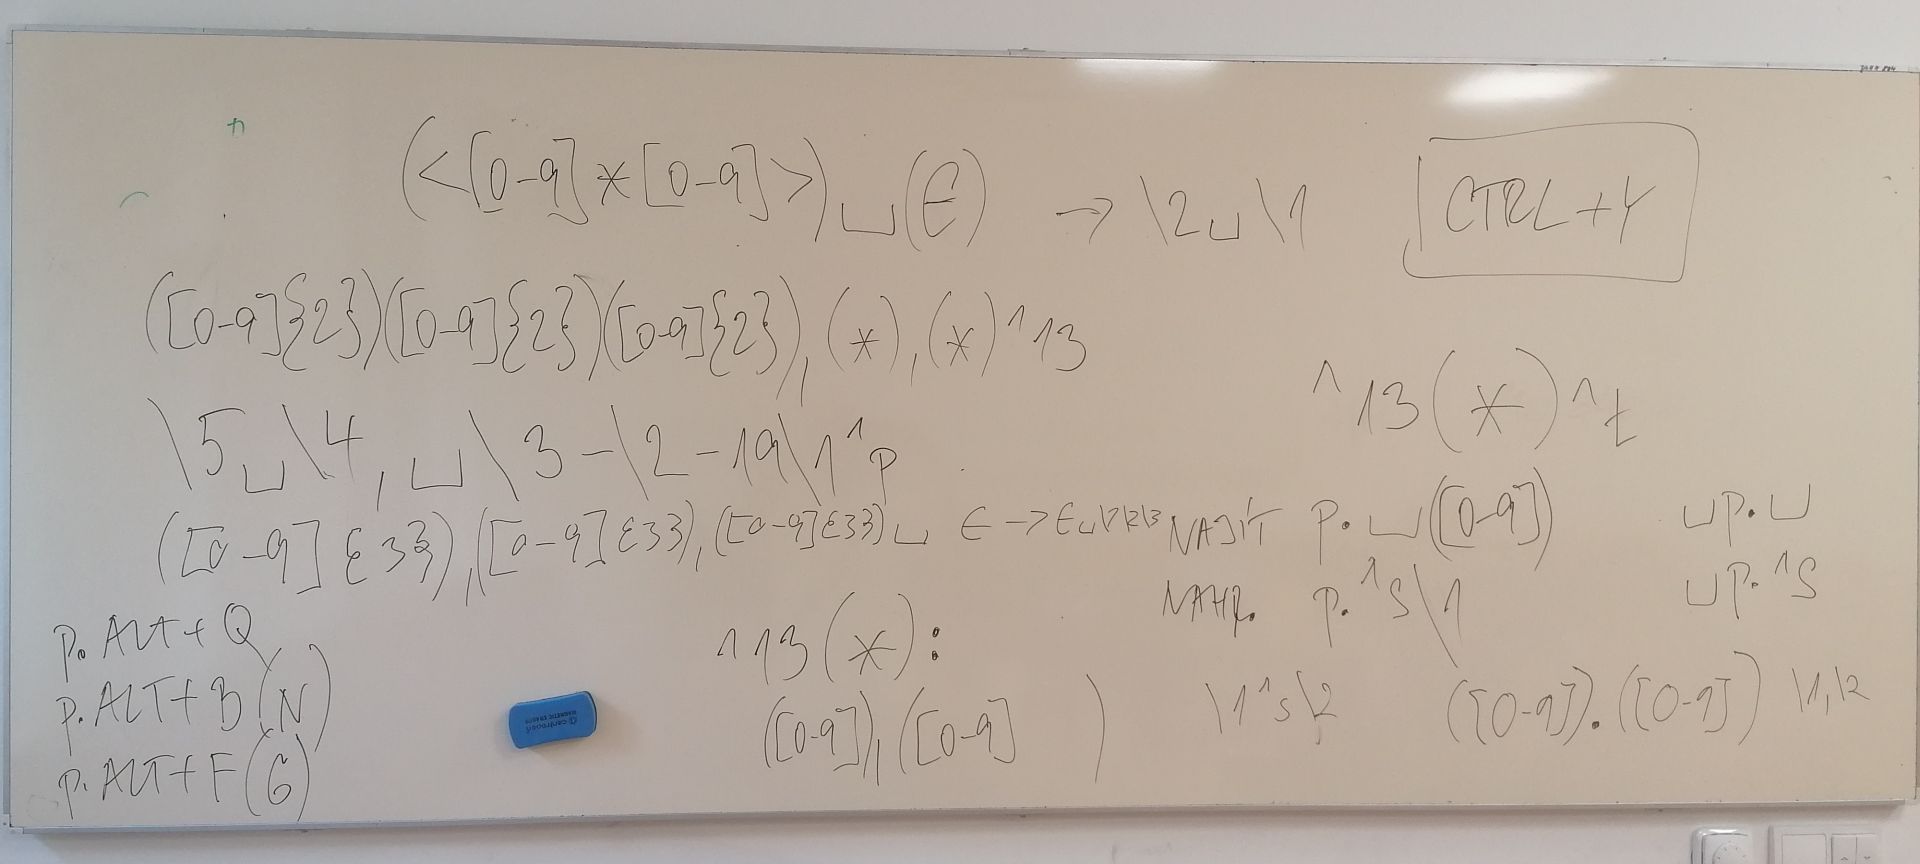 (<[0-9]*[0-9]>)␣(€) → \2␣\1
CTRL+Y
([0-9]{2})([0-9]{2})([0-9]{2}),(*),(*)^13
^13(*)^t
\5␣\4,␣\3-\2-19\1^p
([0-9]{3}),([0-9]{3}),([0-9]{3})␣ € → €␣\1\2\3
NAJÍT p.␣([0-9]) ␣p.␣
NAHR. p.^s\1 ␣p.^s
p. ALT+Q
p. ALT+B(N)
p. ALT+F(G)
^13(*):
([0-9]),([0-9] )
\1^s\2
([0-9]).([0-9]) \1,\2
centropen
MAGNETIC ERASER